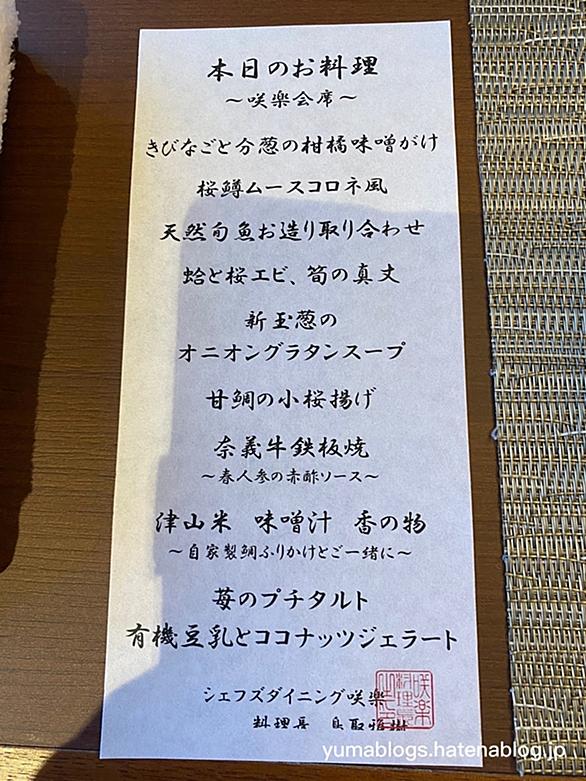 本日のお料理
～咲楽会席～
きびなごと分葱の柑橘味噌がけ
桜鱒ムースコロネ風
天然旬魚お造り取り合わせ
蛤と桜エビ、筍の真丈
新玉葱の
オニオングラタンスープ
甘鯛の小桜揚げ
奈義牛鉄板焼
～春人参の赤酢ソース～
津山米　味噌汁　香の物
～自家製鯛ふりかけとご一緒に～
苺のプチタルト
有機豆乳とココナッツジェラート
シェフズダイニング咲楽
料理長
咲楽
料理長
yumablogs.hatenablog.jp